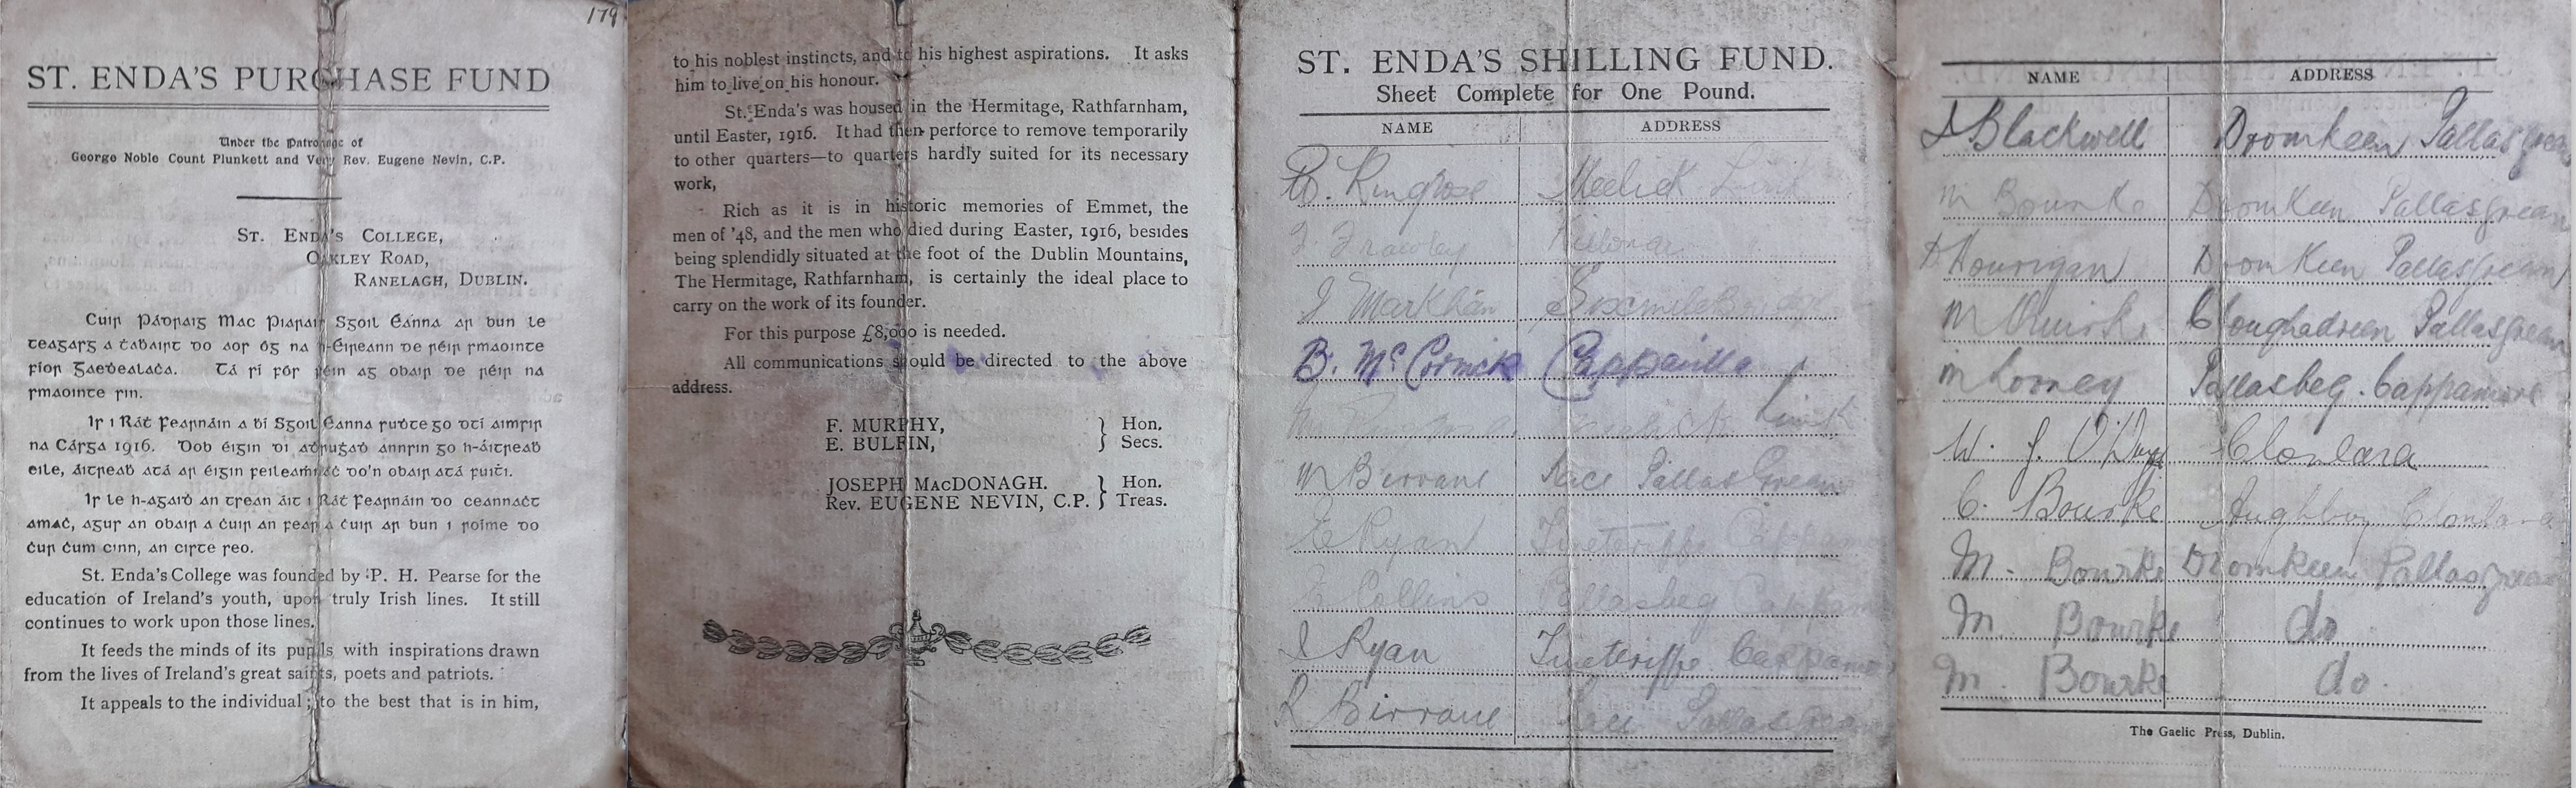 179
ST. ENDA'S PURCHASE FUND
Under the Patronage of
George Noble Count Plunkett and Very Rev. Eugene Nevin, C.P.
ST. ENDA'S COLLEGE,
OAKLEY ROAD,
RANELAGH, DUBLIN.
Cuir Pádraig Mac Piarais Sgoil Éanna ar bun le
teagasg a ṫabairt do aos óg na h-Éireann de réir smaointe
fíor Gaeḋealaċa. Tá sí fós féin ag obair de réir na
smaointe sin.
Is i Ráṫ Fearnáin a ḃí Sgoil Éanna suiḋte go dtí aimsir
na Cásga 1916. Dob éigin di aṫruġaḋ annsin go h-áitreaḃ
eile, áitreaḃ atá ar éigin feileaṁnaċ do'n obair atá fúiṫi.
Is le h-agaiḋ an tsean áit i Ráṫ Fearnáin do ceannaċt
amaċ, agus an obair a ċuir an fear a ċuir ar bun í roime do
ċur ċum cinn, an ciste seo.
St. Enda's College was founded by P. H. Pearse for the
education of Ireland's youth, upon truly Irish lines. It still
continues to work upon those lines.
It feeds the minds of its pupils with inspirations drawn
from the lives of Ireland's great saints, poets and patriots.
It appeals to the individual; to the best that is in him,
to his noblest instincts, and to his highest aspirations. It asks
him to live on his honour.
St. Enda's was housed in the Hermitage, Rathfarnham,
until Easter, 1916. It had then perforce to remove temporarily
to other quarters—to quarters hardly suited for its necessary
work,
Rich as it is in historic memories of Emmet, the
men of '48, and the men who died during Easter, 1916, besides
being splendidly situated at the foot of the Dublin Mountains,
The Hermitage, Rathfarnham, is certainly the ideal place to
carry on the work of its founder.
For this purpose £8,000 is needed.
All communications should be directed to the above
address.
F. MURPHY,
E. BULFIN, } Hon. Secs.
JOSEPH MacDONAGH.
Rev. EUGENE NEVIN, C.P. } Hon. Treas.
ST. ENDA'S SHILLING FUND.
Sheet Complete for One Pound.
NAME ADDRESS
B. Ringrose Meelick Limk
J. Frawley
J Markham Sixmilebridge
B. McCormick Cappavilla
Limk
M Birrane Lace Pallas Grean
E Ryan Tineteriffe Cappamore
Collins Pallasbeg Cappamore
J Ryan Tineteriffe Cappamore
R Birrane Lace Pallas Grean
NAME ADDRESS
J Blackwell Dromkeen Pallasgrean
M Bourke Dromkeen Pallasgrean
D Hourigan Dromkeen Pallasgrean
M Quirke Cloughadreen Pallasgrean
M Looney Pallasbeg. Cappamore
W. J. O'Dwyer Clonlara
C. Bourke Aughboy Clonlara
M. Bourke Dromkeen Pallasgrean
M. Bourke do
M. Bourke do.
The Gaelic Press, Dublin.